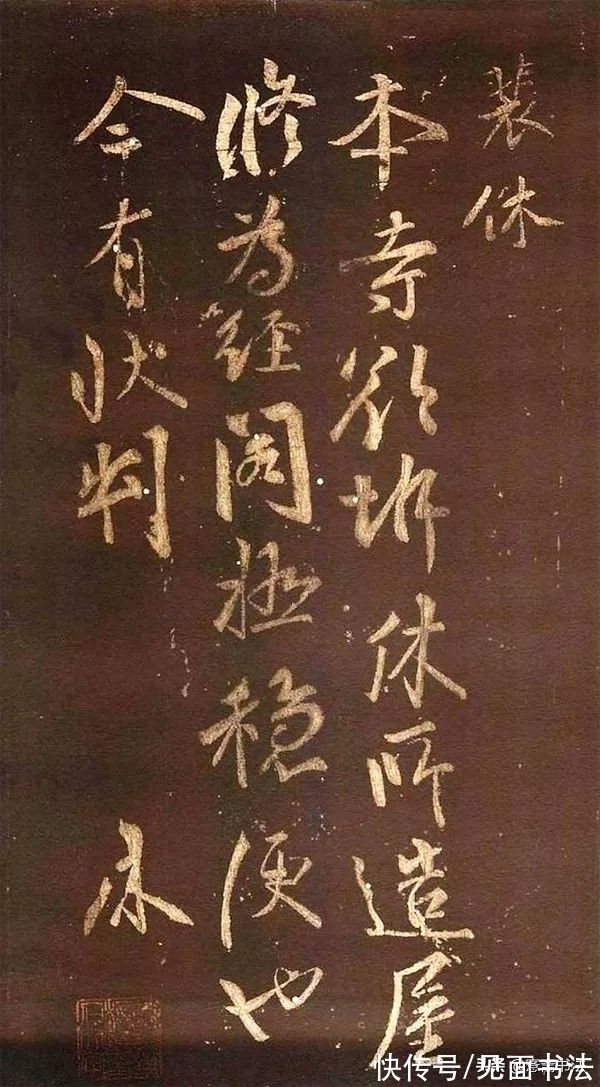 裴休
本寺欲拆休所造屋
脩為經閣極穩便也
今有狀判 休
快传号/见面书法